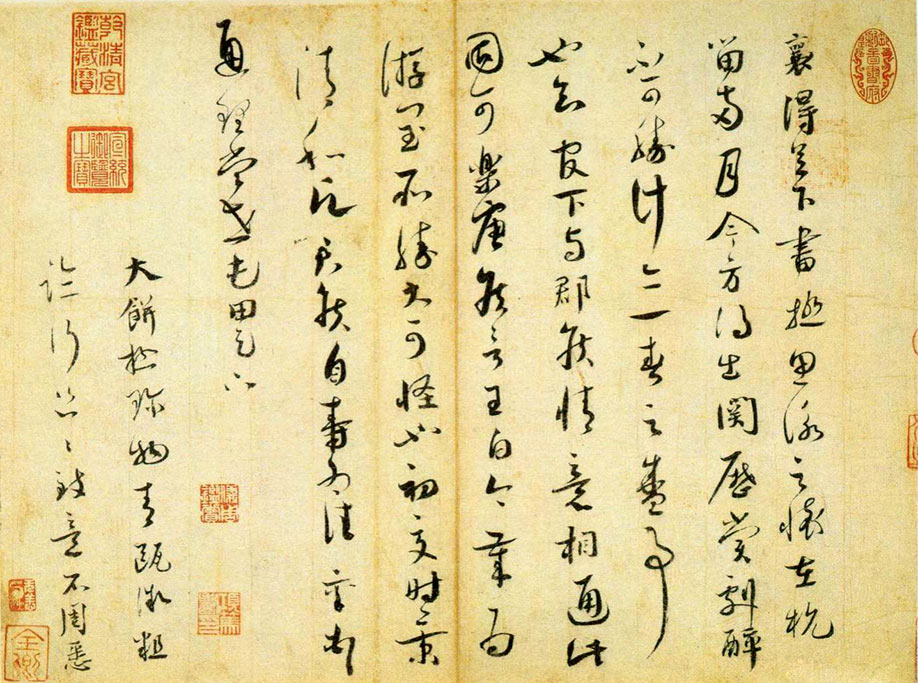 襄得足下書極思詠之懷在杭
留兩月今方得出關歷賞劇醉
不可勝計亦一春之盛事
也知官下與郡侯情意相通此
固可樂唐侯言王白今歲為
游閏所勝大可怪也初夏時景
清和願君侯自壽為佳襄頓首
通理當世屯田足下
大餅極珍物青甌微粗
臨行匆匆致意不周悉
乾清宮鑑藏寶
宣統御覽之寶